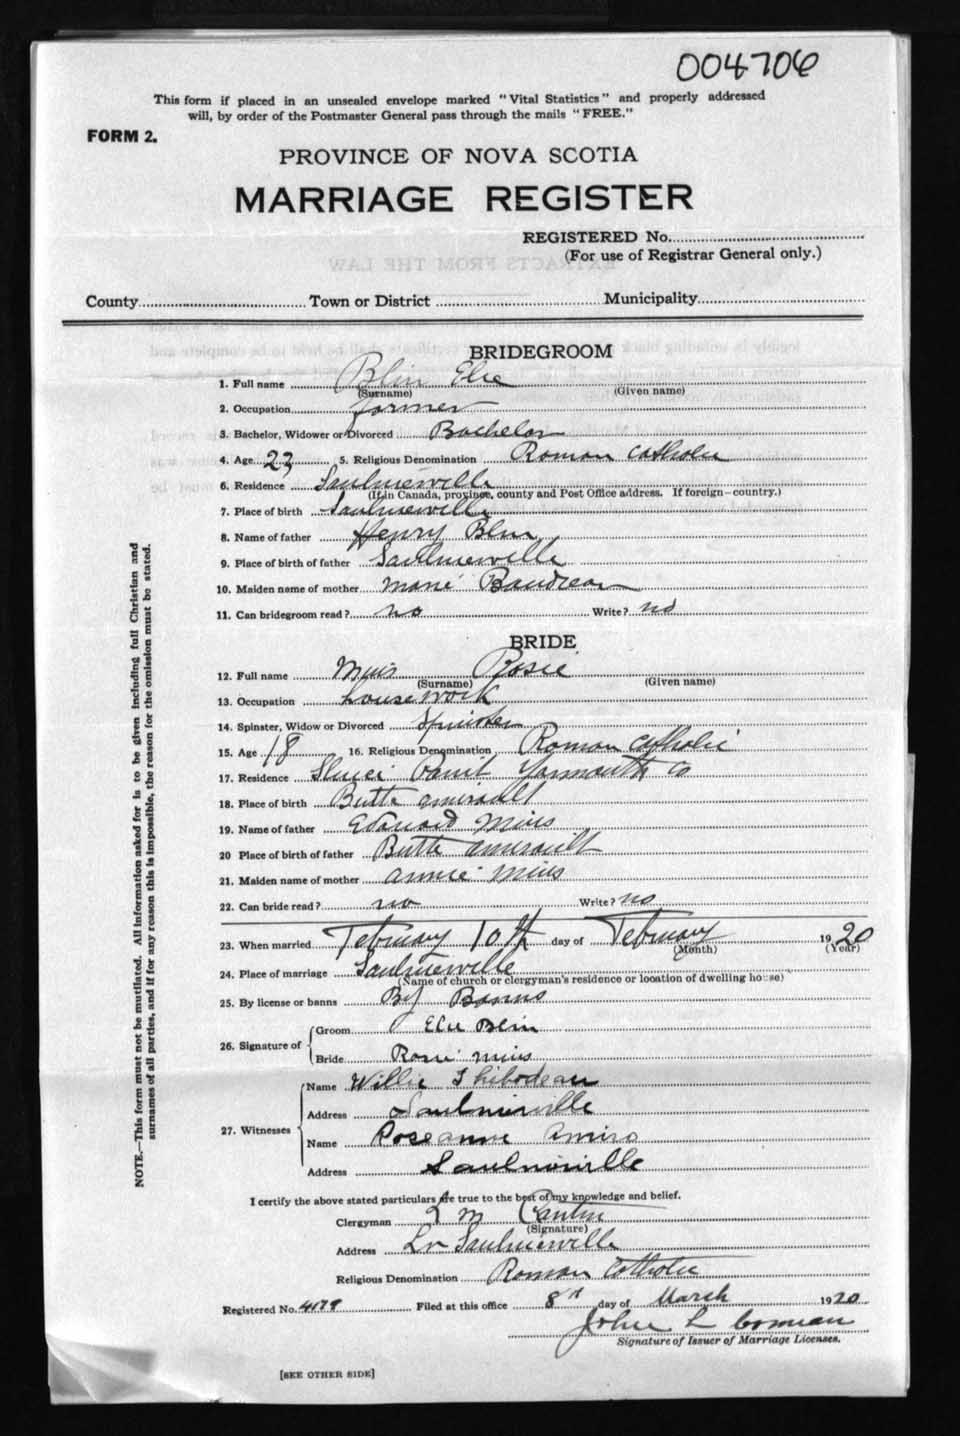 004706
This form if placed in an unsealed envelope marked "Vital Statistics" and properly addressed
will, by order of the Postmaster General pass through the mails "FREE."
FORM 2.
PROVINCE OF NOVA SCOTIA
MARRIAGE REGISTER
REGISTERED No.
(For use of Registrar General only.)
County Town or District Municipality
BRIDEGROOM
1. Full name Blin Elie
(Surname) (Given name)
2. Occupation farmer
3. Bachelor, Widower or Divorced Bachelor
4. Age 23 5. Religious Denomination Roman Catholic
6. Residence Saulnierville
(If in Canada, province, county and Post Office address. If foreign—country.)
7. Place of birth Saulnierville
8. Name of father Henry Blin
9. Place of birth of father Saulnierville
10. Maiden name of mother Marie Boudreau
11. Can bridegroom read? no Write? no
BRIDE
12. Full name Mius Rosie
(Surname) (Given name)
13. Occupation housework
14. Spinster, Widow or Divorced Spinster
15. Age 18 16. Religious Denomination Roman Catholic
17. Residence Yarmouth Co
18. Place of birth Butte amirault
19. Name of father Edouard Mius
20 Place of birth of father Butte amirault
21. Maiden name of mother annie Mius
22. Can bride read? no Write? no
23. When married February 10th day of February 1920
(Month) (Year)
24. Place of marriage Saulnierville
(Name of church or clergyman's residence or location of dwelling house)
25. By license or banns By Banns
26. Signature of
Groom Elie Blin
Bride Rosie Mius
27. Witnesses
Name Willie Thibodeau
Address Saulnierville
Name Roseanne Amiro
Address Saulnierville
I certify the above stated particulars are true to the best of my knowledge and belief.
Clergyman
(Signature)
Address Saulnierville
Religious Denomination Roman Catholic
Registered No. 4179 Filed at this office 8th day of March 1920
John L Comeau
Signature of Issuer of Marriage Licenses.
[SEE OTHER SIDE]
NOTE.—This form must not be mutilated. All information asked for is to be given including full Christian and
surnames of all parties, and if for any reason this is impossible, the reason for the omission must be stated.